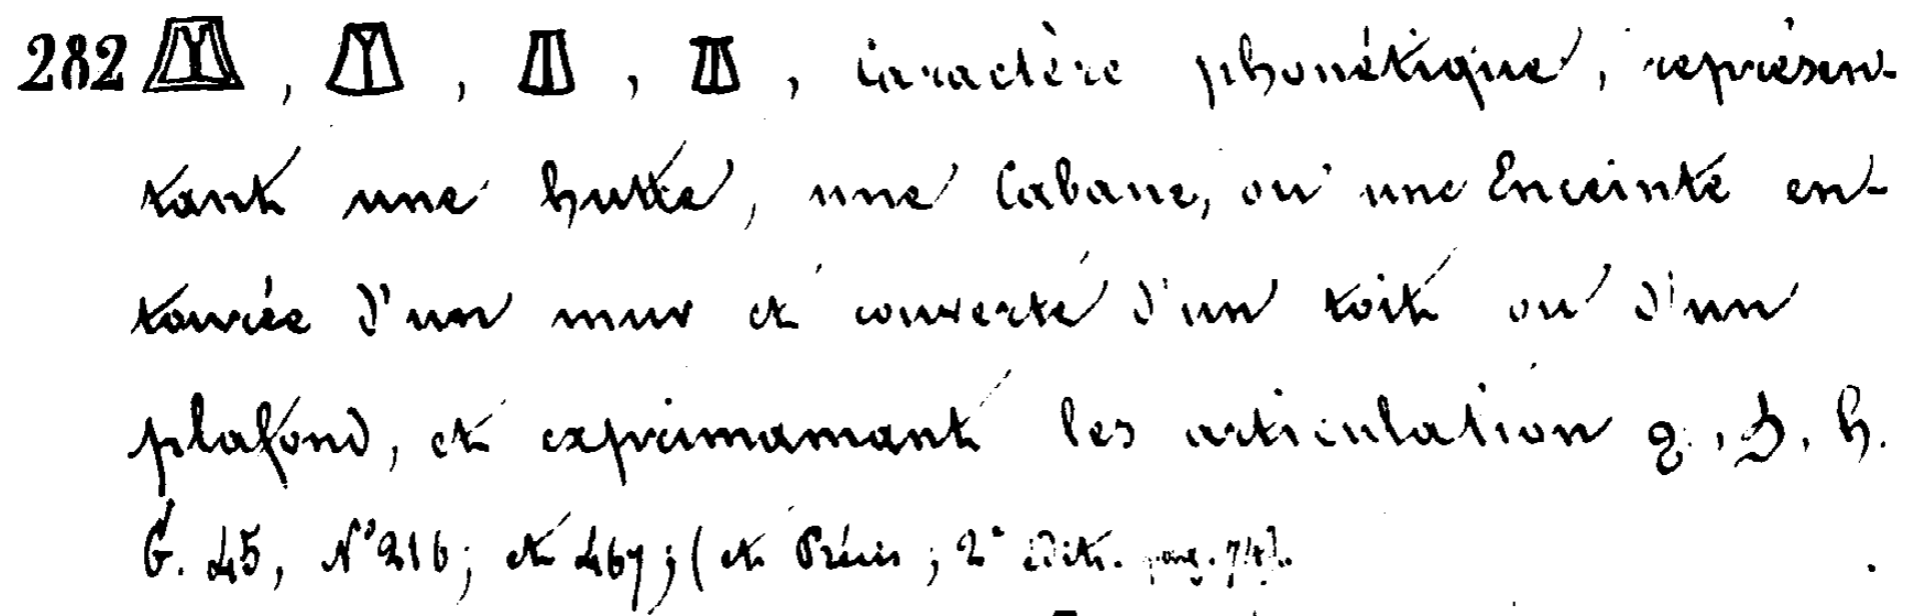 282 , , , , Caractère phonétique, représen-
tant une hutte, une Cabane, ou une Enceinte en-
tourée d'un mur et couverte d'un toit ou d'un
plafond, et exprimamant les articulation ϩ, ϧ, h.
G. 45, N° 216; et 467; (et Précis; 2e Edit. pag. 74).